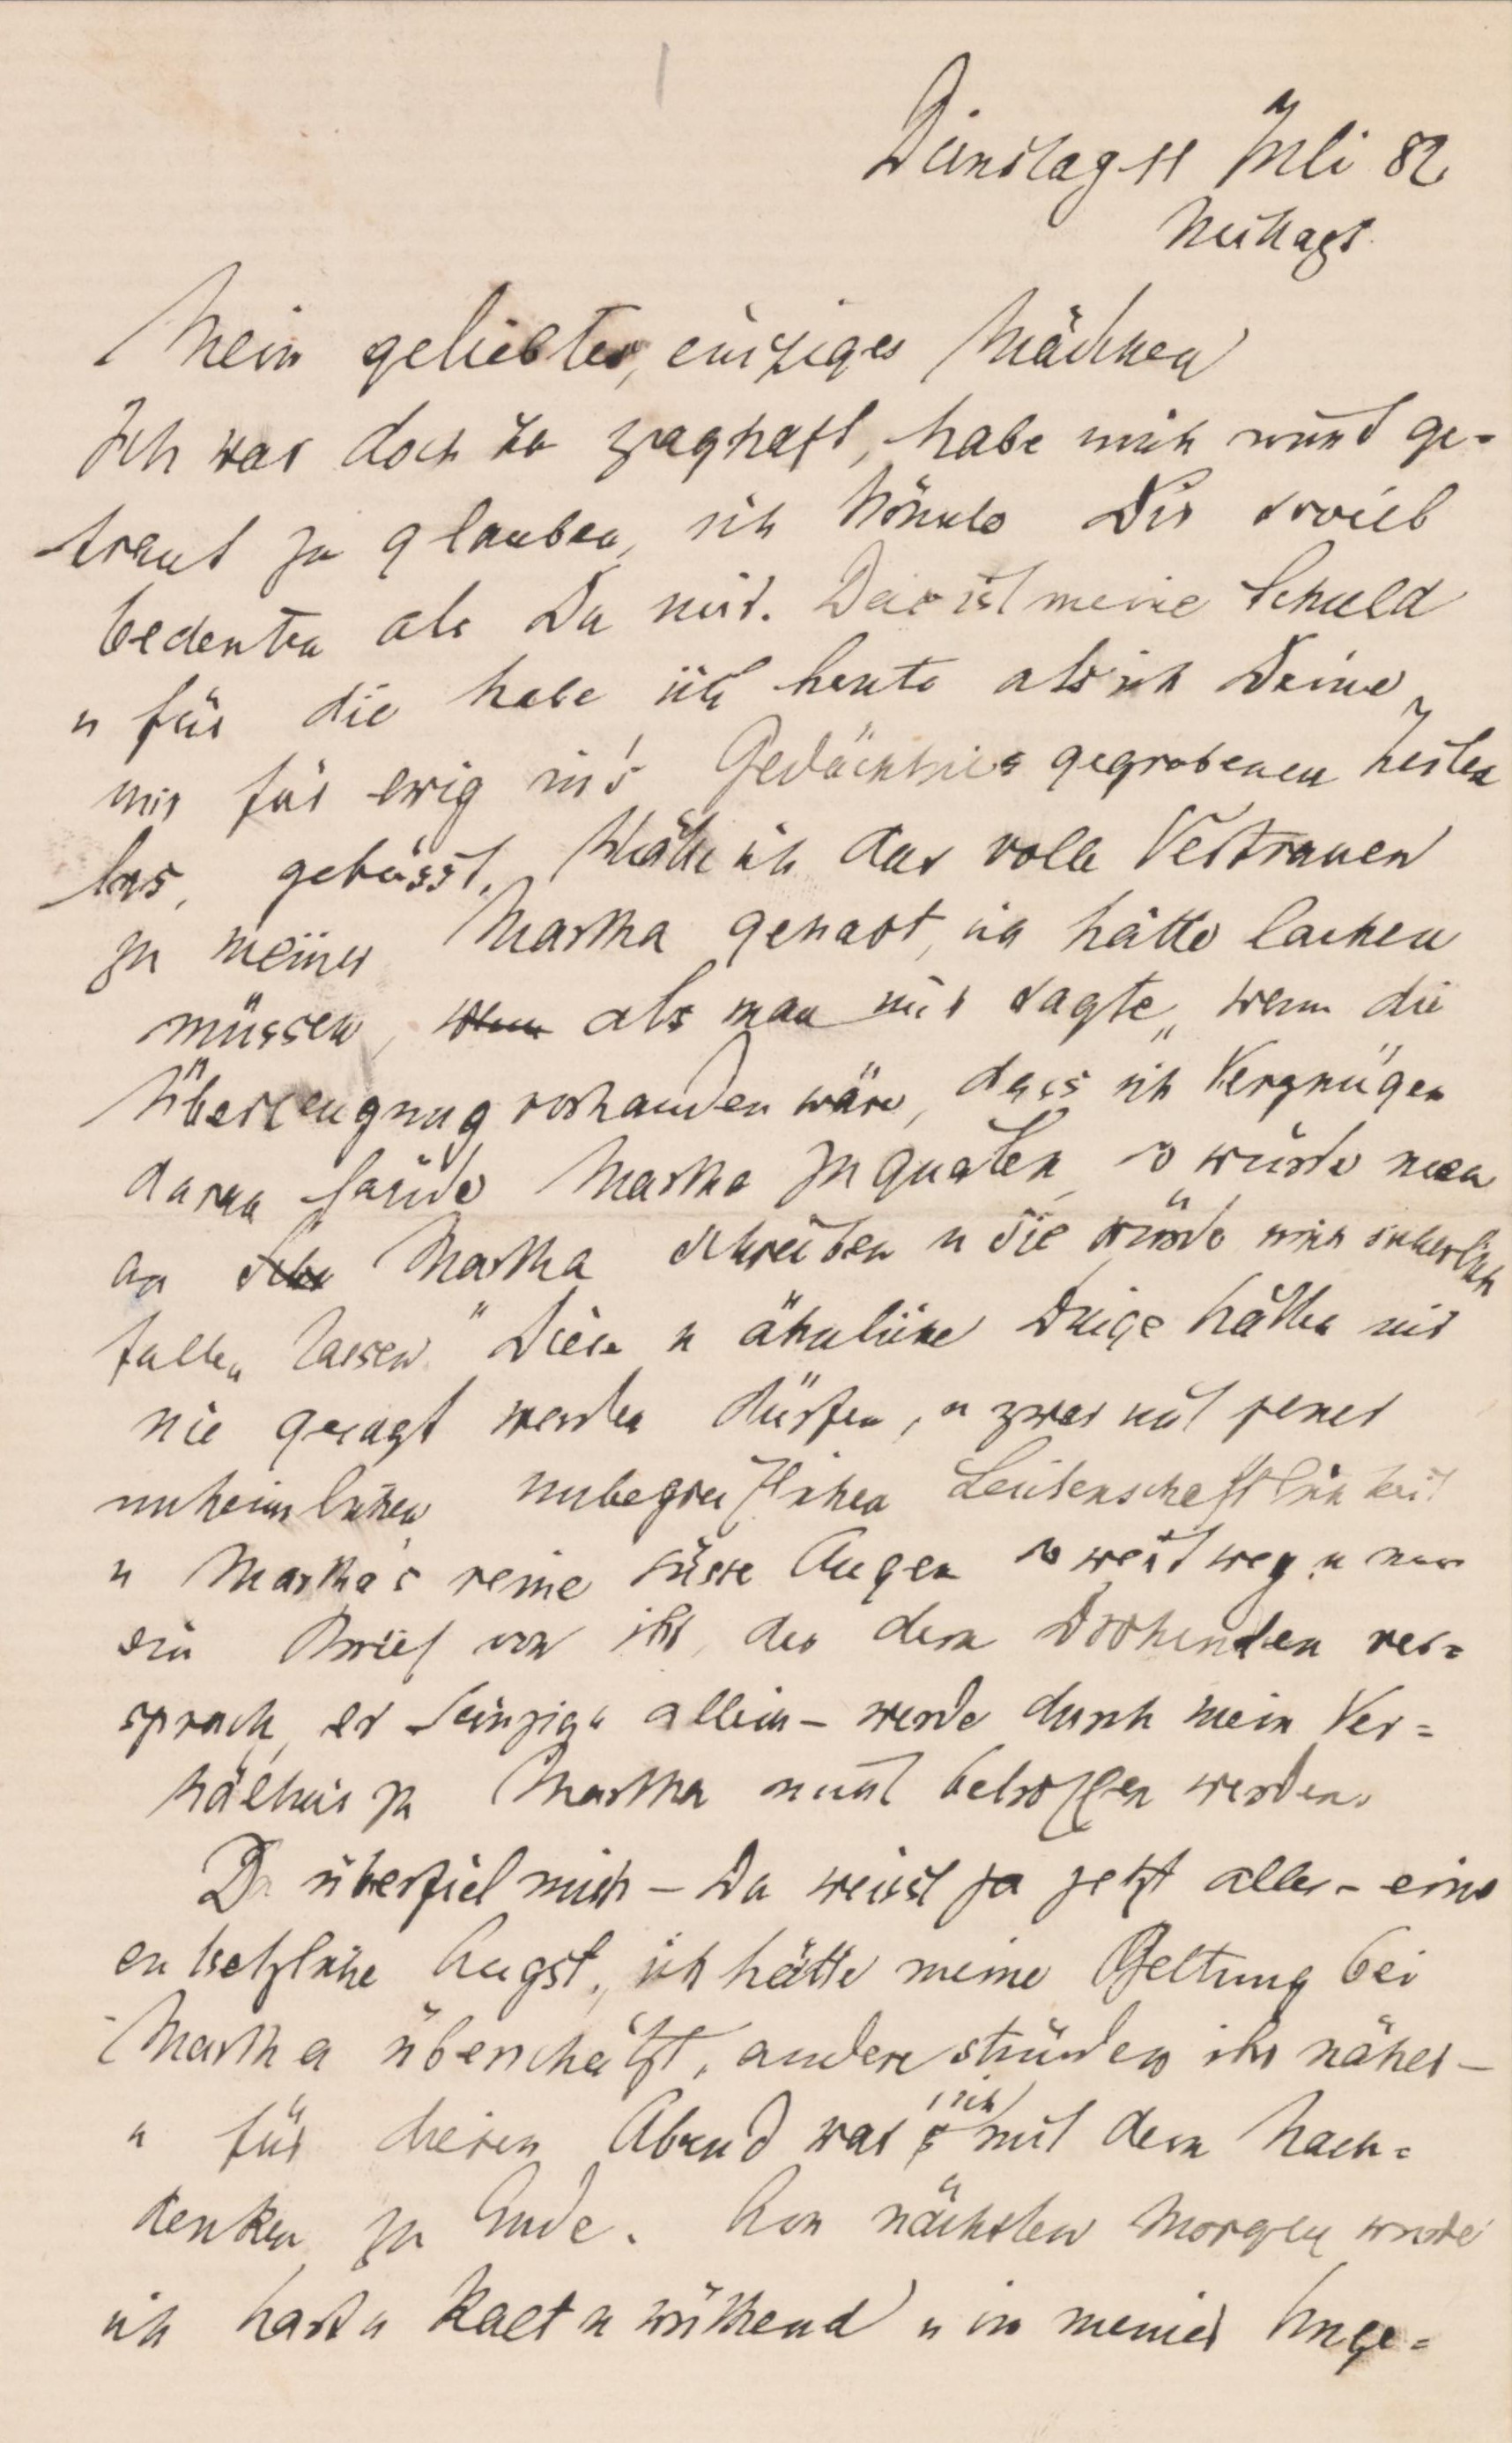 Dienstag 11 Juli 82
Mein geliebtes, einziges Mädchen
Ich war doch zu zaghaft, habe mich nicht ge-
traut zu glauben, ich könnte Dir soviel
bedeuten als Du mir. Das ist meine Schuld
u für die habe ich heute als ich Deine
mir für ewig in's Gedächtnis gegrabenen Zeilen
las, gebüsst. Hätte ich das volle Vertrauen
zu meiner Martha gehabt, ich hätte lachen
müssen, wenn als man mir sagte „wenn die
Überzeugung vorhanden wäre, dass ich Vergnügen
daran fände Martha zu quälen, so würde man
an Martha schreiben u sie würde mich sicherlich
fallen lassen" Diese u ähnliche Dinge hätten mir
nie gesagt werden dürfen, u zwar mit jener
unheimlichen unbegreiflichen Leidenschaftlichkeit
u Martha's reine süsse Augen so weit weg u nur
ein Brief von ihr, der dem Drohenden ver=
sprach, er einzig u allein – werde durch mein Ver=
hältnis zu Martha nicht betroffen werden.
Da überfiel mich – Du weisst ja jetzt alles – eine
entsetzliche Angst, ich hätte meine Geltung bei
Martha überschätzt, andere stünden ihr näher –
u für diesen Abend war ich mit dem Nach=
denken zu Ende. Am nächsten Morgen wurde
ich hart u kalt u wüthend u in meiner Unge=